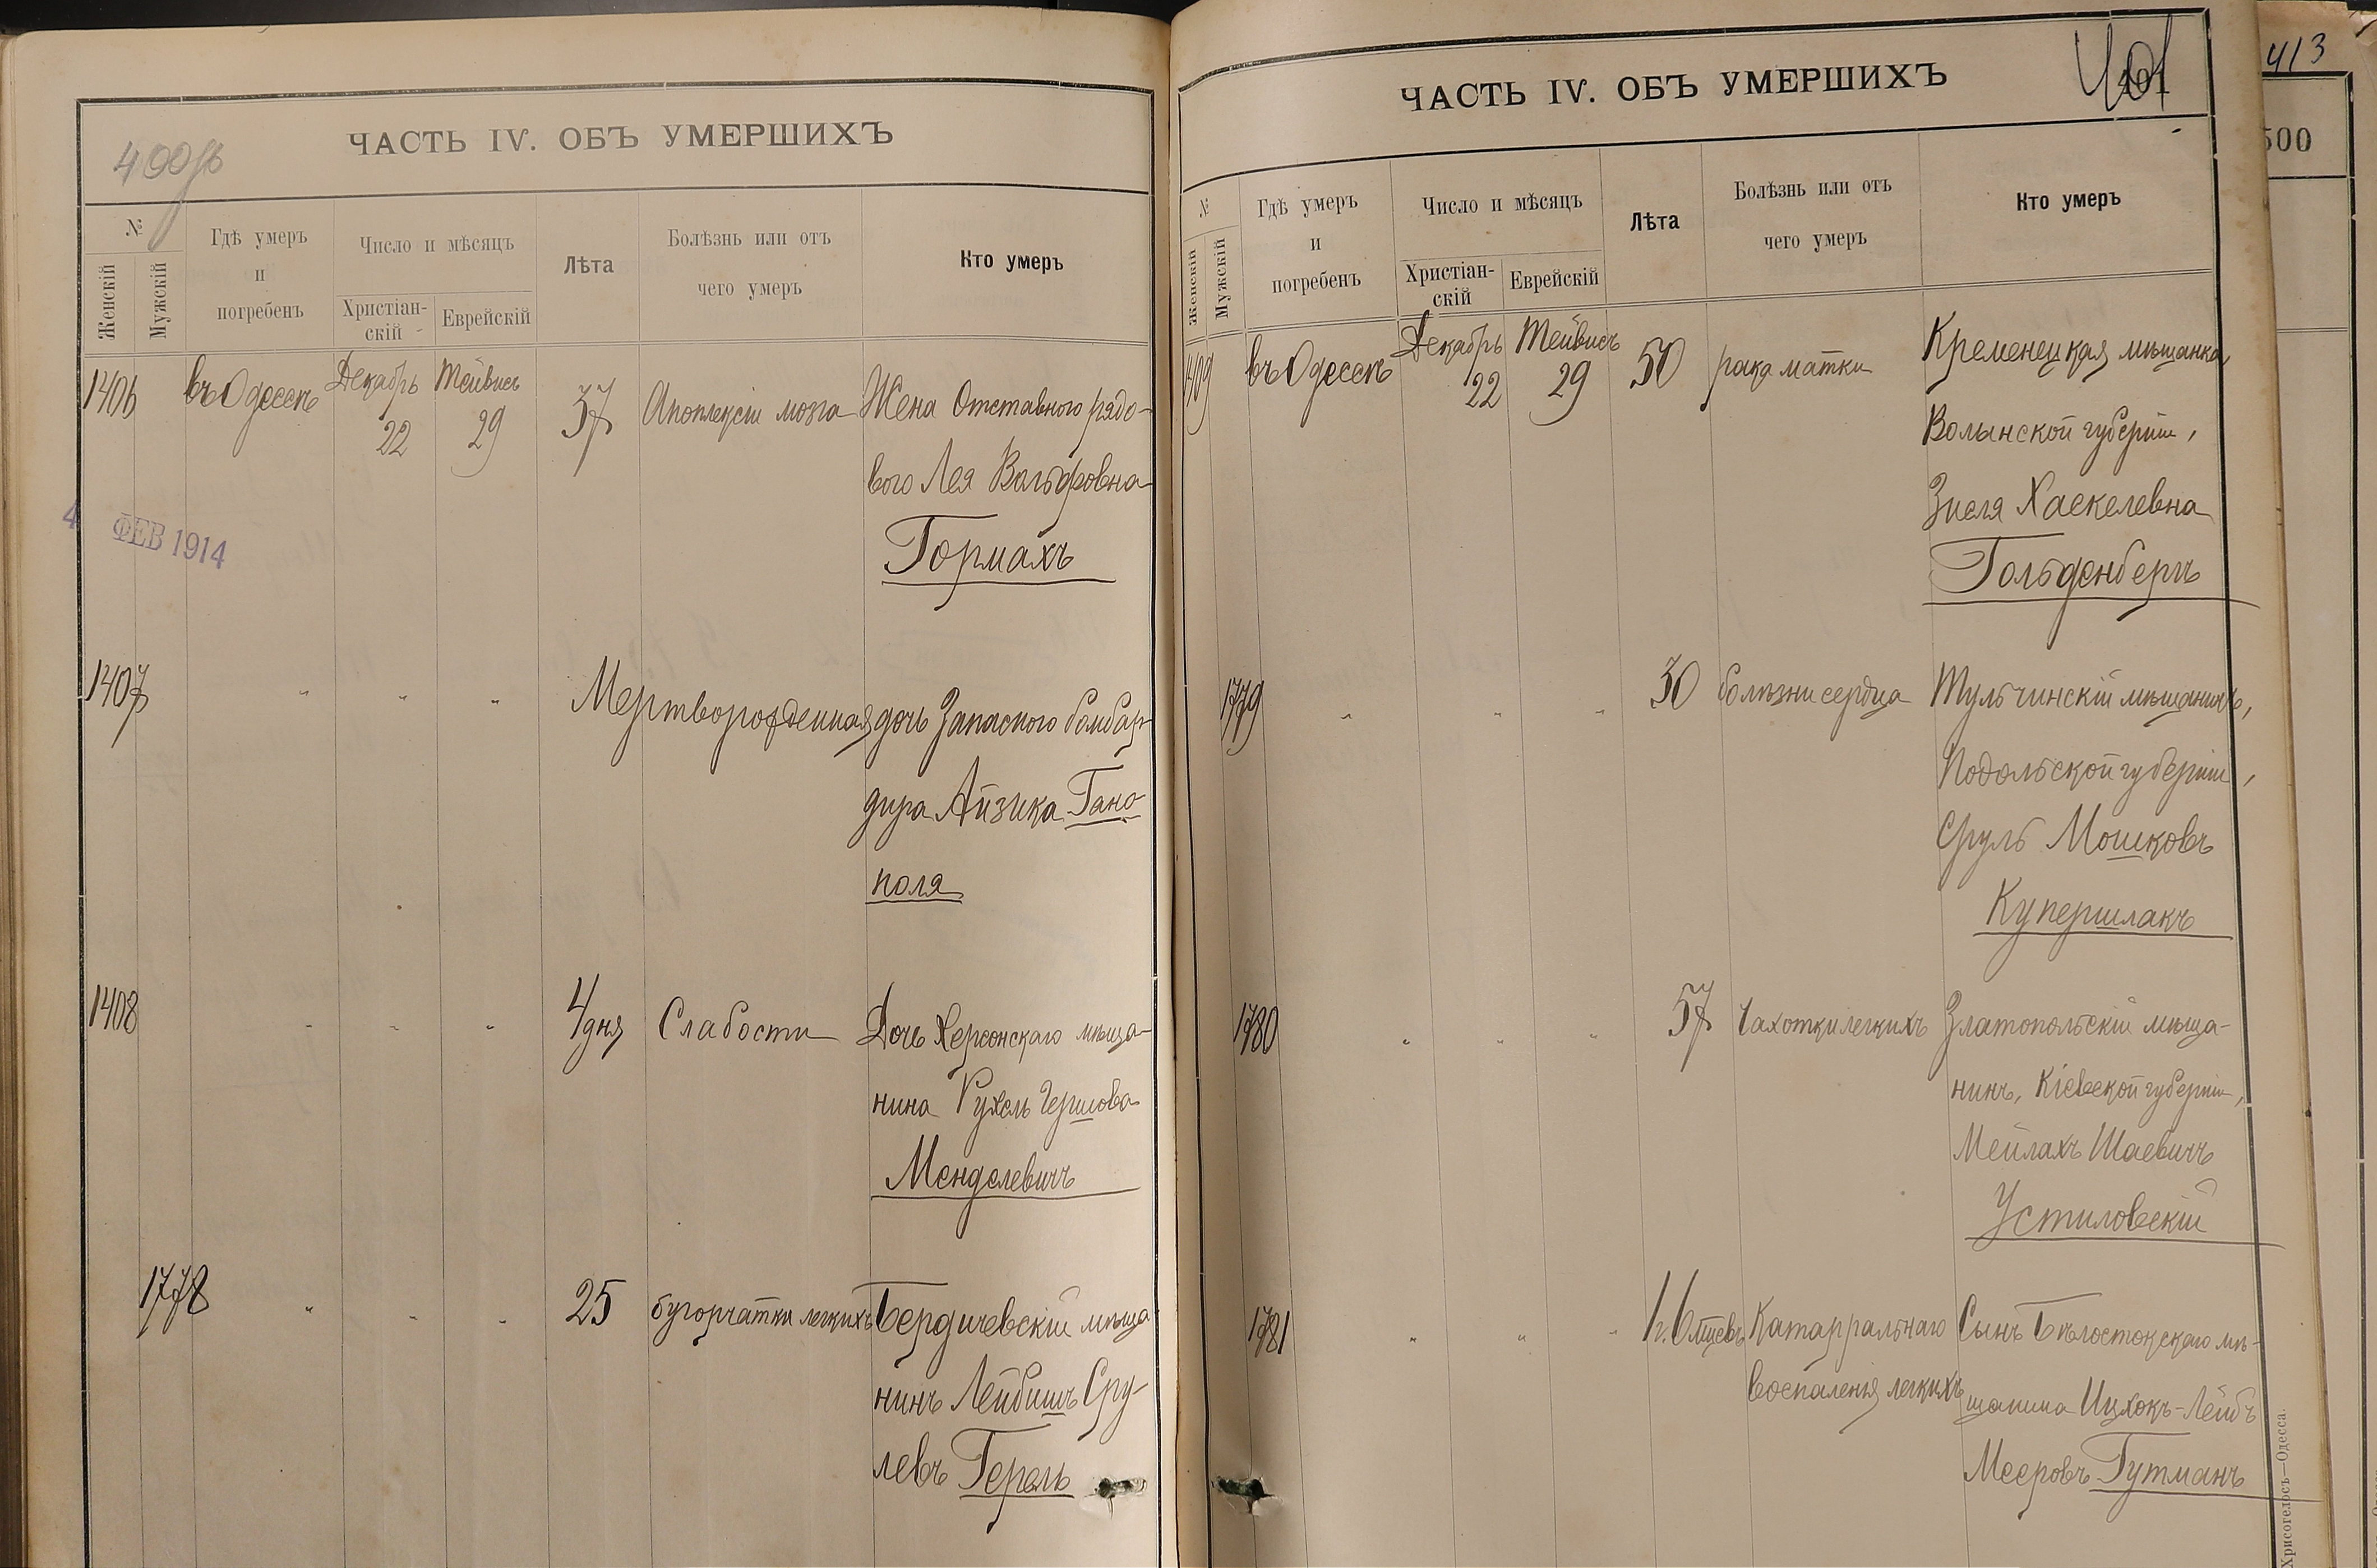 400об
ЧАСТЬ IV. ОБЪ УМЕРШИХЪ
№
Женскій
Мужскій
Гдѣ умеръ
и
погребенъ
Число и мѣсяцъ
Христіан-
скій
Еврейскій
Лѣта
Болѣзнь или отъ
чего умеръ
Кто умеръ
1406 въ Одессѣ Декабрь 22 Тейвисъ 29 37 Апоплексіи мозга Жена Отставного рядо-
вого Лея Вольфовна
Гормахъ
4 ФЕВ 1914
1407 " " " Мертворожденная дочь Запасного бомбар-
дира Айзика Гано-
поля
1408 " " " 4 дня Слабости Дочь Херсонскаго мѣща-
нина Рухель Гершова
Менделевичъ
1778 " " " 25 бугорчатки легкихъ Бердичевскій мѣща
нинъ Лейбишъ Сру-
левъ Герель
401
ЧАСТЬ IV. ОБЪ УМЕРШИХЪ
№
Женскій
Мужскій
Гдѣ умеръ
и
погребенъ
Число и мѣсяцъ
Христіан-
скій
Еврейскій
Лѣта
Болѣзнь или отъ
чего умеръ
Кто умеръ
1409 въ Одессѣ Декабрь 22 Тейвисъ 29 50 рака матки Кременецкая мѣщанка,
Волынской губерніи,
Зисля Хаскелевна
Гольденбергъ
1779 " " " 30 болѣзни сердца Тульчинскій мѣщанинъ,
Подольской губерніи,
Сруль Мошковъ
Купершлакъ
1780 " " " 57 Чахотки легкихъ Златопольскій мѣща-
нинъ, Кіевской губерніи,
Мейлахъ Шаевичъ
Устиловскій
1781 " " " 1 г. 6 мѣсцевъ Катарральнаго Сынъ Бѣлостокскаго мѣ-
воспаленія легкихъ щанина Ицхокъ-Лейбъ
Мееровъ Гутманъ
Хрисогелосъ—Одесса.
413
500